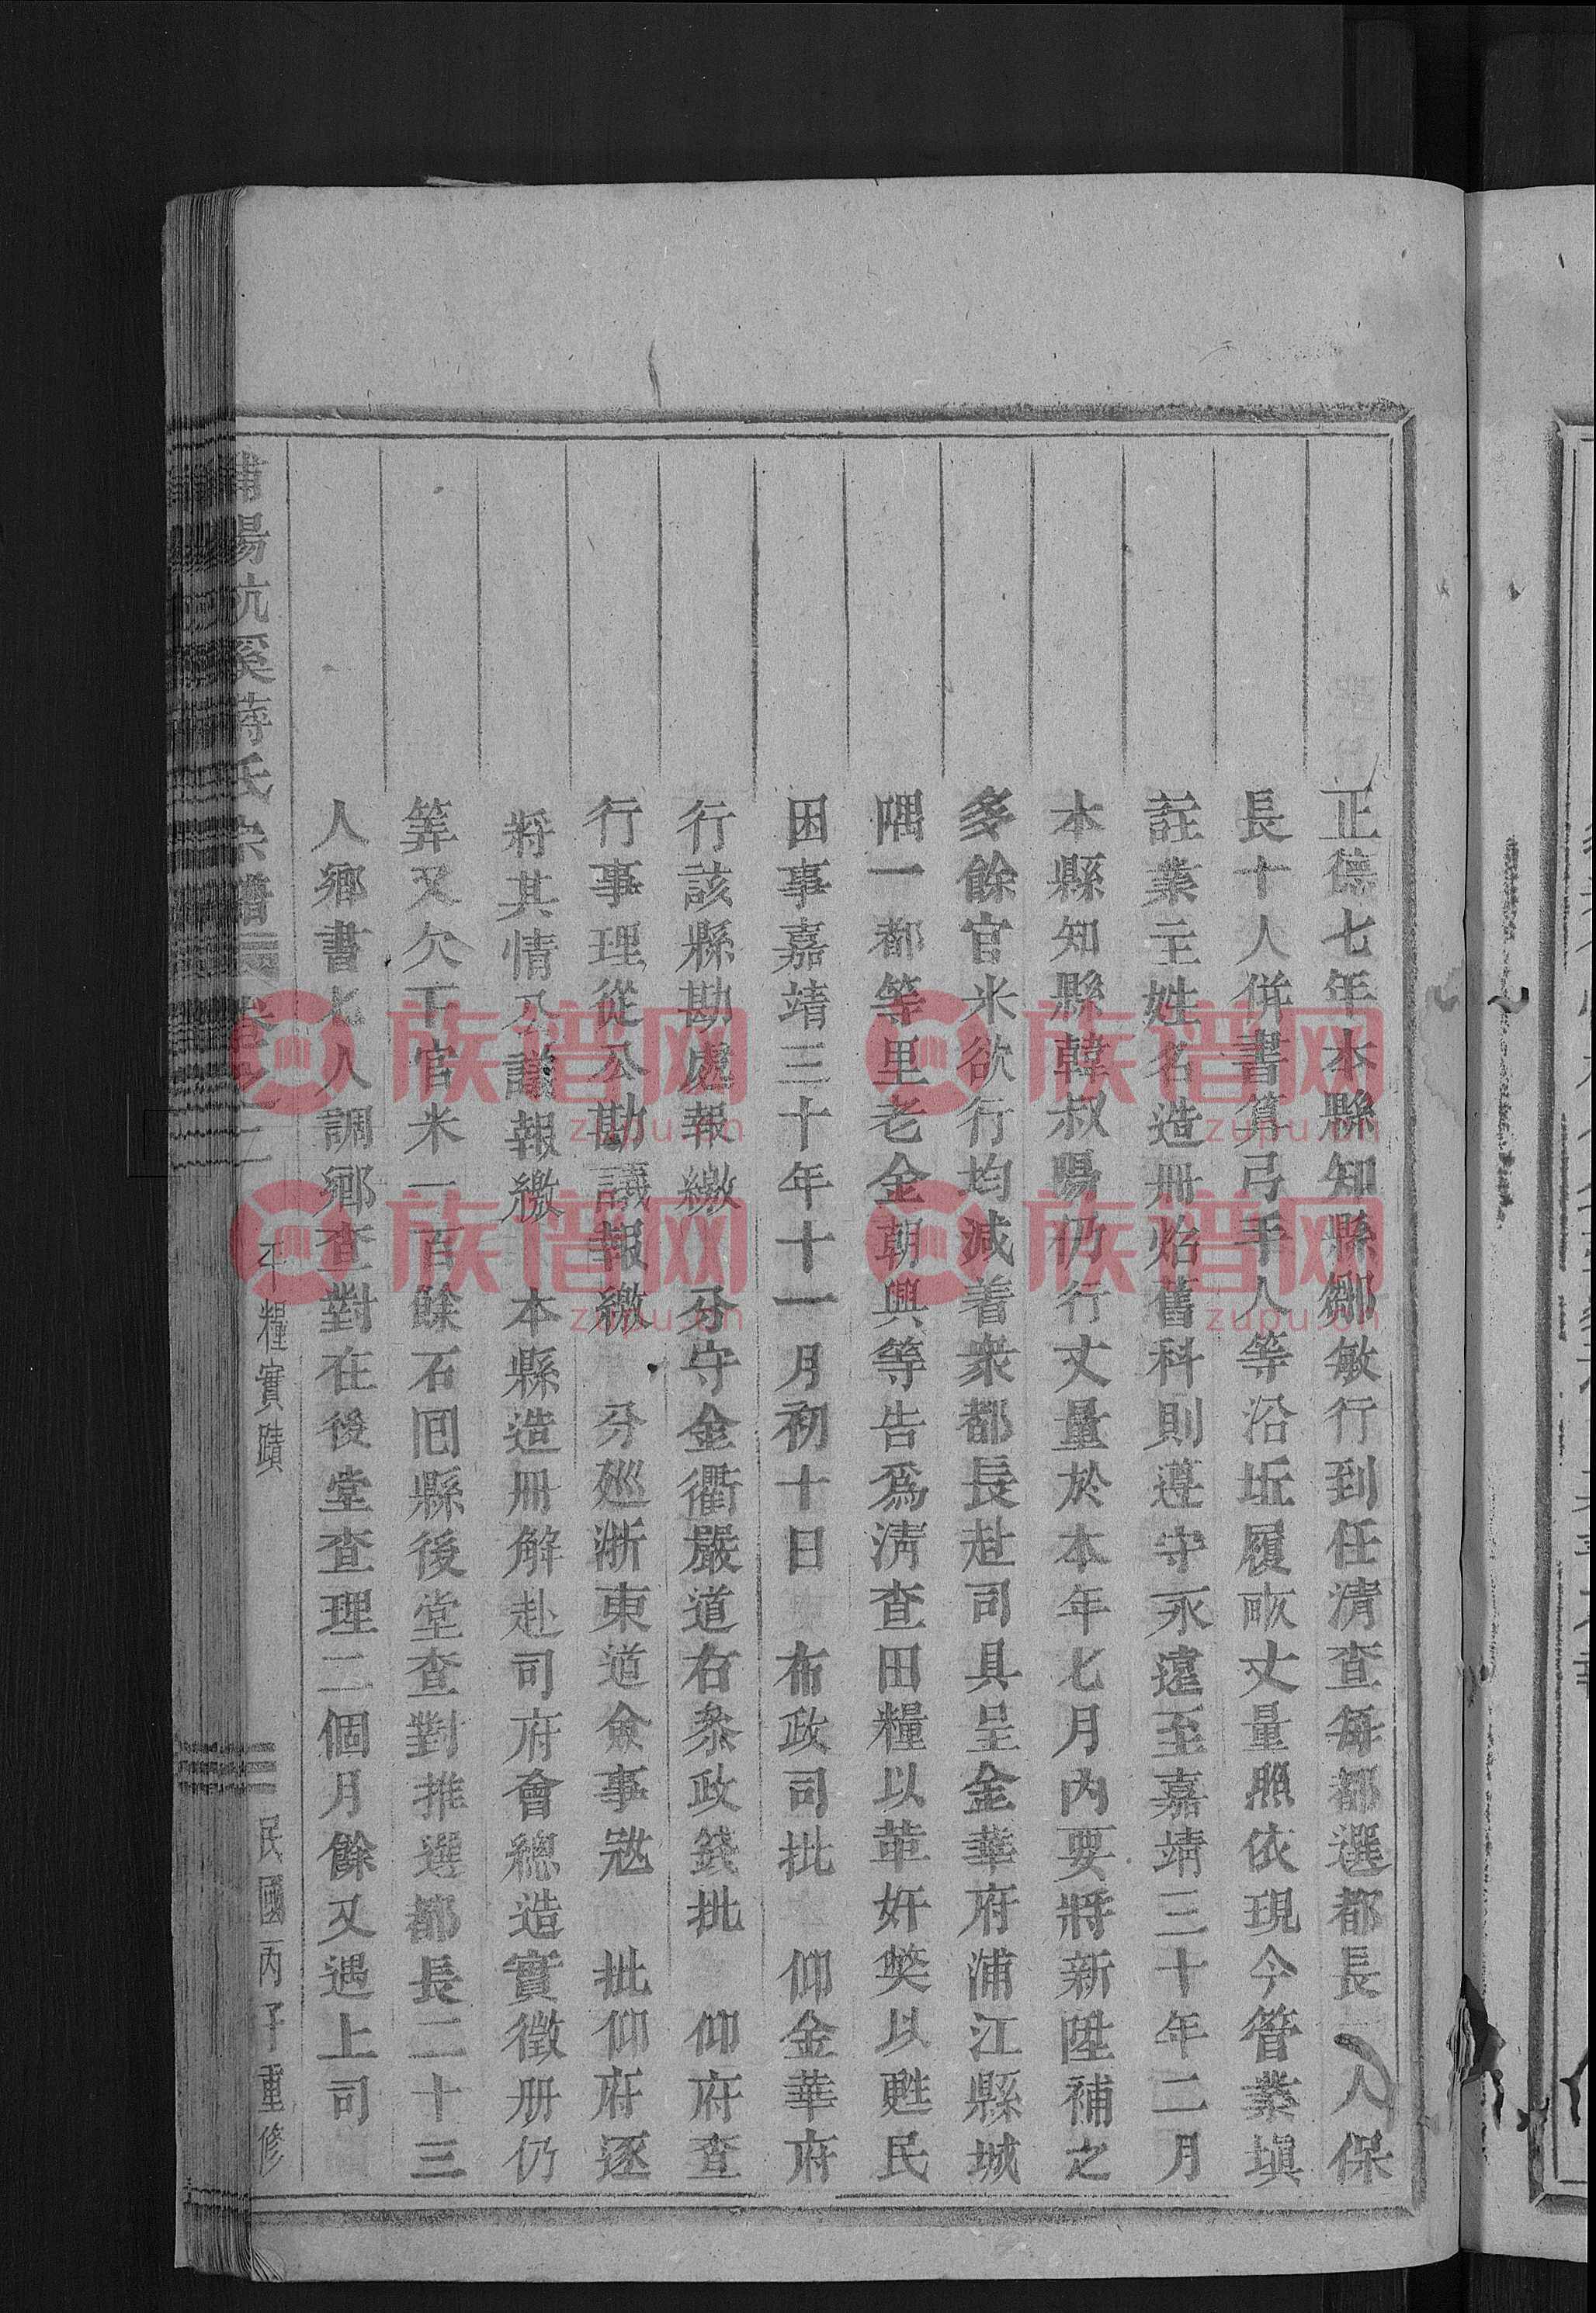 正德七年本縣知縣鄒敏行到任清查每都選都長一人保
長十人併書算弓手人等沿坵履畝丈量照依現今管業塡
註業主姓名造册焰舊科則遵守永遠至嘉靖三十年二月
本縣知縣韓叔陽仍行丈量於本年七月內要將新陞補之
多餘官米欲行均減着衆都長赴司具呈金華府浦江縣城
隅一都等里老金朝興等告爲淸查田糧以革奸獘以甦民
困事嘉靖三十年十一月初十日 布政司批 仰金華府
行該縣勘處報繳 分守金衢嚴道右叅政錢批 仰府查
行事理從公勘議報繳 分廵浙東道僉事 批仰府逐
將其情公議報繳 本縣造册解赴司府會總造實徵册仍
筭又欠下官米一百餘石囘縣後堂查對推選都長二十三
人鄉書七人調鄉查對在後堂查理二個月餘又遇上司
浦陽杭溪蔣氏宗譜 卷之二 糧實蹟 民國丙子重修
族谱网
zupu.cn
族谱网
zupu.cn
族谱网
zupu.cn
族谱网
zupu.cn